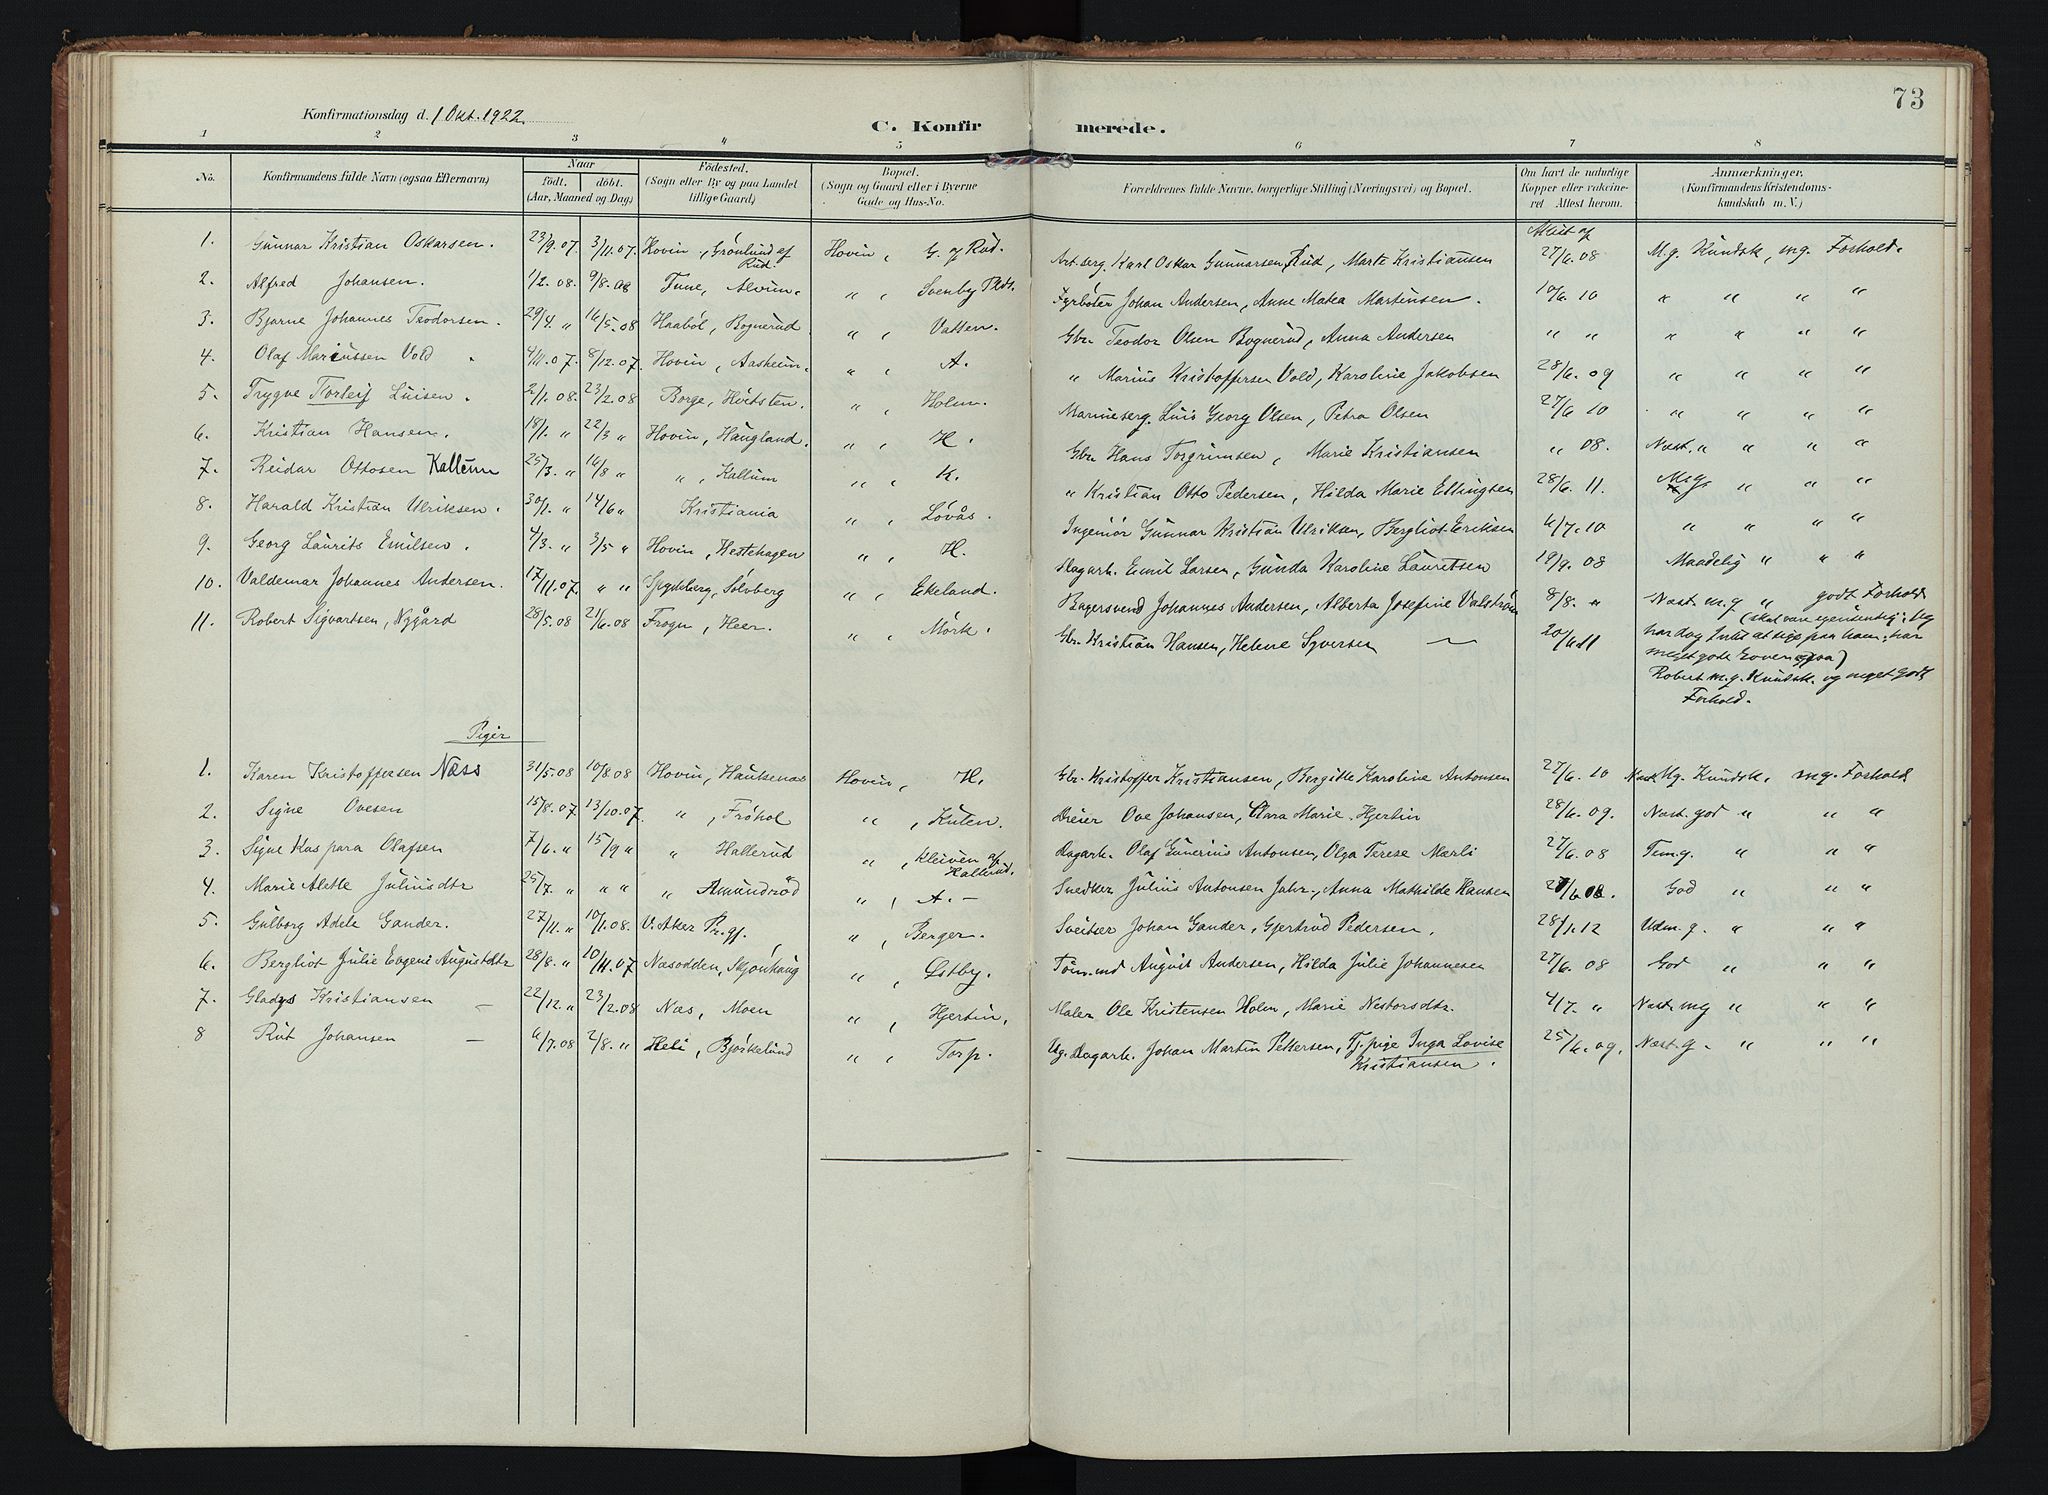 73
Konfirmationsdag d. 1 Okt. 1922.
C. Konfirmerede.
1 2 3 4 5 6 7 8
No. Konfirmandens fulde Navn (ogsaa Efternavn) Naar født. døbt. (Aar, Maaned og Dag) Fødested. (Sogn eller By og paa Landet tillige Gaard) Bopæl. (Sogn og Gaard eller i Byerne Gade og Hus-No. Forældrenes fulde Navne, borgerlige Stilling (Næringsvei) og Bopæl. Om havt de naturlige Kopper eller vakcineret Attest herom. Anmærkninger. (Konfirmandens Kristendomskundskab m. V.)
1. Gunnar Kristian Oskarsen. 23/9.07. 3/11.07. Hovin, Grønlund af Rud. Hovin, G. af Rud. Arb. Karl Oskar Gunnarsen, Rud, Marte Kristiansen Attest af 27/6.08 M.g. Kundsk., mg. Forhold.
2. Alfred Johansen. 1/2.08. 9/8.08 Tune, Alvim. " , Svenby Plds. Fyrbøter Johan Andersen, Anne Matea Martinsen. 10/6.10 " " " "
3. Bjarne Johannes Teodorsen. 29/4. " 16/5.08 Haabøl, Bognerud. " , Vatten. Gbr. Teodor Olsen Bognerud, Anna Andersen " " " " " "
4. Olaf Mariussen Vold " 4/11.07. 8/12.07. Hovin, Aasheim. " , A. " Marius Kristoffersen Vold, Karoline Jakobsen 28/6.09 " " " "
5. Trygve Torleif Luisen. 2/1.08. 23/2.08 Borge, Hvitsten. " , Holm. Luis Georg Olsen, Petra Olsen 27/6 10 " " " "
6. Kristian Hansen. 18/1. " 22/3 " Hovin, Haugland. " , H. Gbr. Hans Torgrimsen, Marie Kristiansen " 08. Næst. " " " "
7. Reidar Ottosen Kallum 25/3. " 16/8 " " , Kallum " , K. " Kristian Otto Pedersen, Hilda Marie Ellingsen 28/6.11. M.g. " " "
8. Harald Kristian Ulriksen. 30/1. " 14/6 " Kristiania " , Løvås. Ingeniør Gunnar Kristian Ulriksen, Bergliot Eriksen 6/7.10 " " " "
9. Georg Laurits Emilsen. 4/3. " 3/5 " Hovin, Hestehagen " , H. Dagarb. Emil Larsen, Gunda Karoline Lauritsen 19/9.08 Maadelig " " "
10. Valdemar Johannes Andersen. 17/11.07. " " Spydeberg, Solberg " , Ekeland. Bagersvend Johannes Andersen, Alberta Josefine Valstrøm 8/8. " Næst. m.g. " godt Forhold
11. Robert Sigvartsen, Nygård 28/5.08 21/6.08 Frogn, Heer. " , Mørk. Gbr. Kristian Hansen, Helene Syversen — 20/6.11 (skal være egensindig; jeg
har dog Intet at sige paa ham; har
meget gode Evner ogsaa)
Robert m.g. Kundsk. og meget godt
Forhold.
Piger
1. Karen Kristoffersen Næss 31/5.08 10/8.08 Hovin, Hauksenæs Hovin, H. Gbr. Kristoffer Kristiansen, Bergitte Karoline Antonsen 27/6.10 Næst. Mg. Kundsk. mg. Forhold.
2. Signe Ovesen 15/8.07 13/10.07. " , Frøhol " , Kulen. Dreier Ove Johansen, Clara Marie Hjertin 28/6.09. Næst. god " " "
3. Signe Kaspara Olafsen 7/6. " 15/9 " " Hallerud " , Kleiven af Hallerud. Dagarb. Olaf Gunerius Antonsen, Olga Terese Mærli 27/6.08 Tem.g. " " "
4. Marie Alette Juliusdtr 25/7. " " " " Amundrød " , A. — Snedker Julius Antonsen Jahr, Anna Mathilde Hansen 27/6.08. God " " "
5. Gulborg Adele Gander. 27/11. " 10/1.08. V. Aker Pr.gj. " , Berger. Sveitser Johan Gander, Gjertrud Pedersen. 28/1.12 Udm. g. " " "
6. Bergliot Julie Eugeni Augustdtr 28/8. " 10/11.07 Næsodden, Skjønhaug " , Østby. Tøm.md August Andersen, Hilda Julie Johannesen 27/6.08 God " " "
7. Gladys Kristiansen — 22/12. " 23/2.08 Næs, Moen " , Hjertin. Maler Ole Kristensen Holm, Marie Nestorsdtr. 4/7. " Næst. mg " " "
8 Rut Johansen — 6/7.08 2/8. " Heli, Bjørkelund " , Torp. Ug. Dagarb. Johan Martin Pettersen, Tj.pige Inga Lovise Kristiansen. 25/6.09. Næst. g. " " "